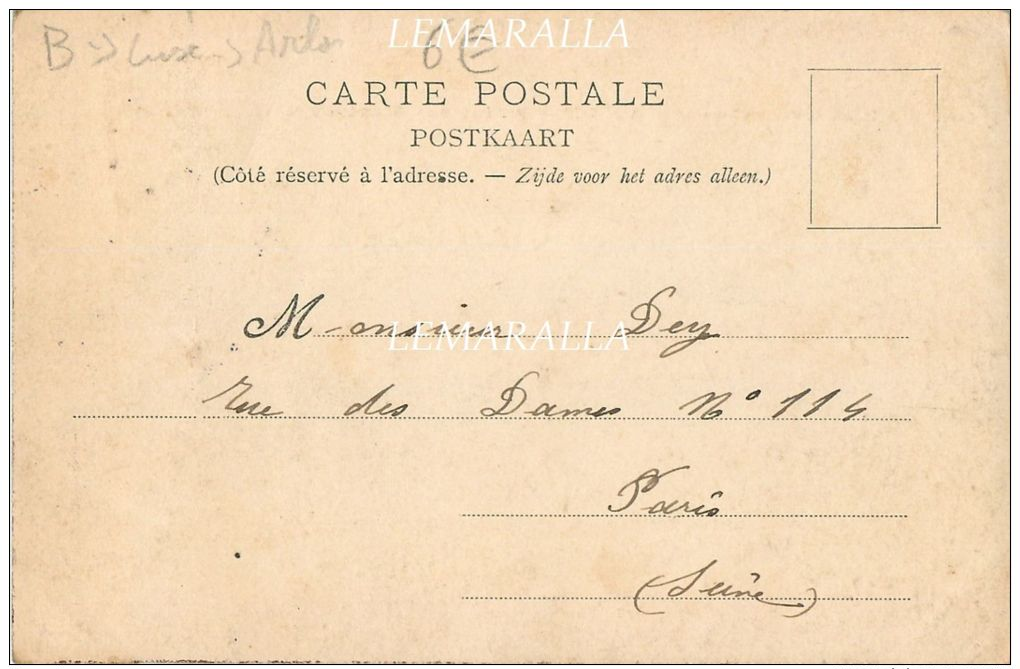 LEMARALLA
B -> Luxe -> Arlon 6€
CARTE POSTALE
POSTKAART
(Côté réservé à l'adresse. — Zijde voor het adres alleen.)
Monsieur Dey
LEMARALLA
Rue des Dames N° 114
Paris
(Seine)